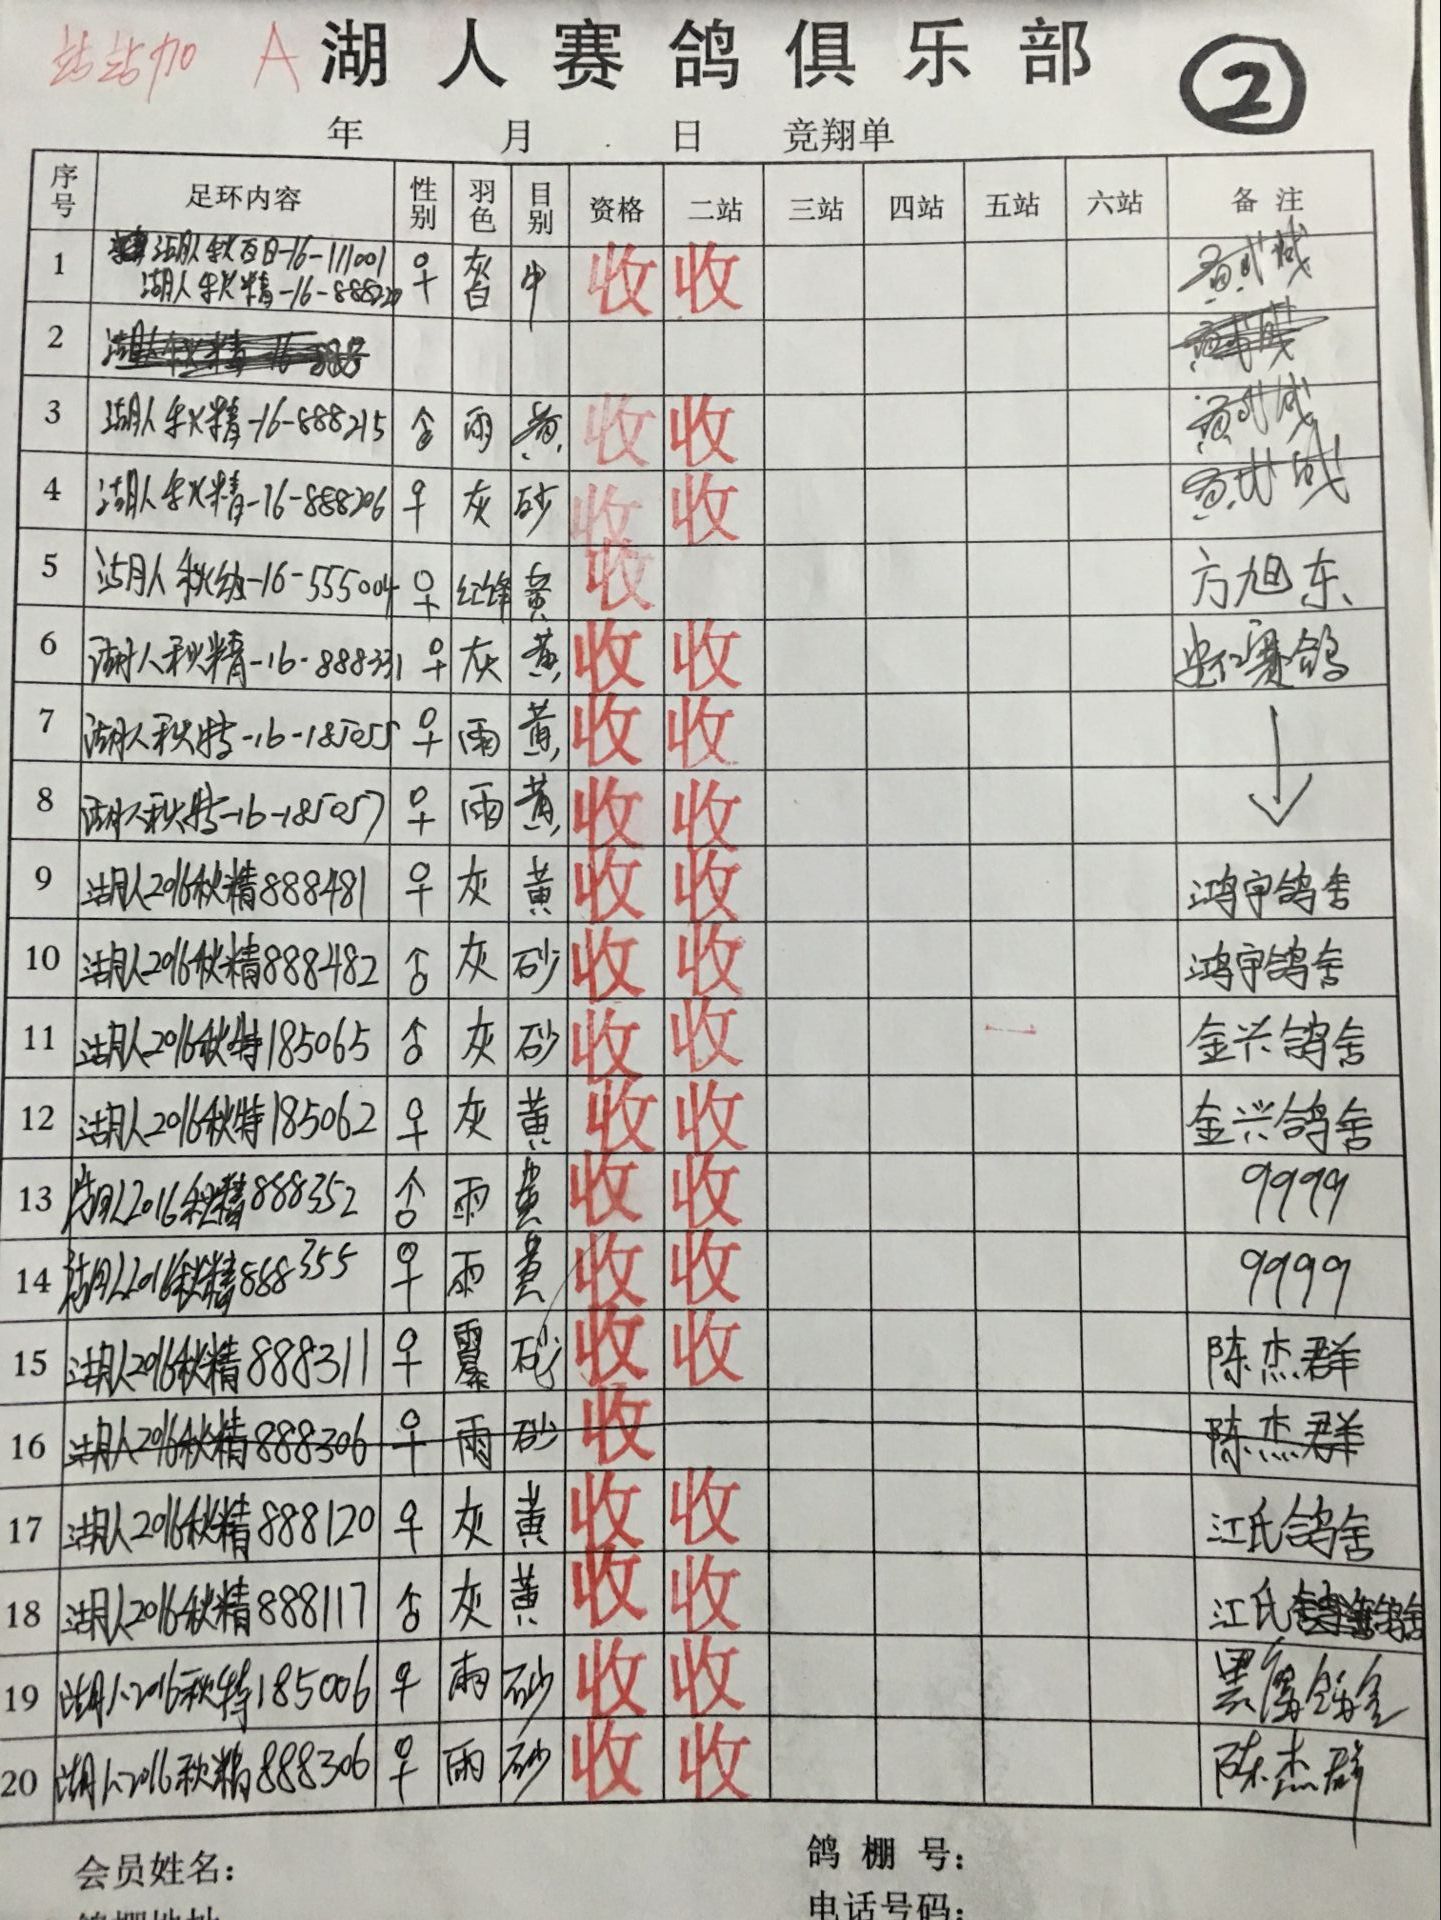 站站加 A 湖人赛鸽俱乐部 ②
年 月 日 竞翔单
序号 足环内容 性别 羽色 目别 资格 二站 三站 四站 五站 六站 备注
1 湖人秋百日-16-111001 ♀ 灰白 牛 收 收
湖人秋精-16-888220
2
3 湖人秋精-16-888215 ♂ 雨 黄 收 收
4 湖人秋精-16-888206 ♀ 灰 砂 收 收
5 湖人秋红-16-555004 ♀ 红绛 黄 收 方旭东
6 湖人秋精-16-888331 ♀ 灰 黄 收 收 忠仁赛鸽
7 湖人秋特-16-185055 ♀ 雨 黄 收 收
8 湖人秋特-16-185057 ♀ 雨 黄 收 收
9 湖人2016秋精888481 ♀ 灰 黄 收 收 鸿宇鸽舍
10 湖人2016秋精888482 ♂ 灰 砂 收 收 鸿宇鸽舍
11 湖人2016秋特185065 ♂ 灰 砂 收 收 金兴鸽舍
12 湖人2016秋特185062 ♀ 灰 黄 收 收 金兴鸽舍
13 湖人2016秋精888352 ♂ 雨 黄 收 收 9999
14 湖人2016秋精888355 ♀ 雨 黄 收 收 9999
15 湖人2016秋精888311 ♀ 砂 收 收 陈杰群
16 湖人2016秋精888306 ♀ 雨 砂 收 陈杰群
17 湖人2016秋精888120 ♀ 灰 黄 收 收 江氏鸽舍
18 湖人2016秋精888117 ♂ 灰 黄 收 收 江氏鸽舍
19 湖人2016秋特185006 ♀ 雨 砂 收 收
20 湖人2016秋精888306 ♀ 雨 砂 收 收 陈杰群
会员姓名： 鸽棚号：
鸽棚地址 电话号码：